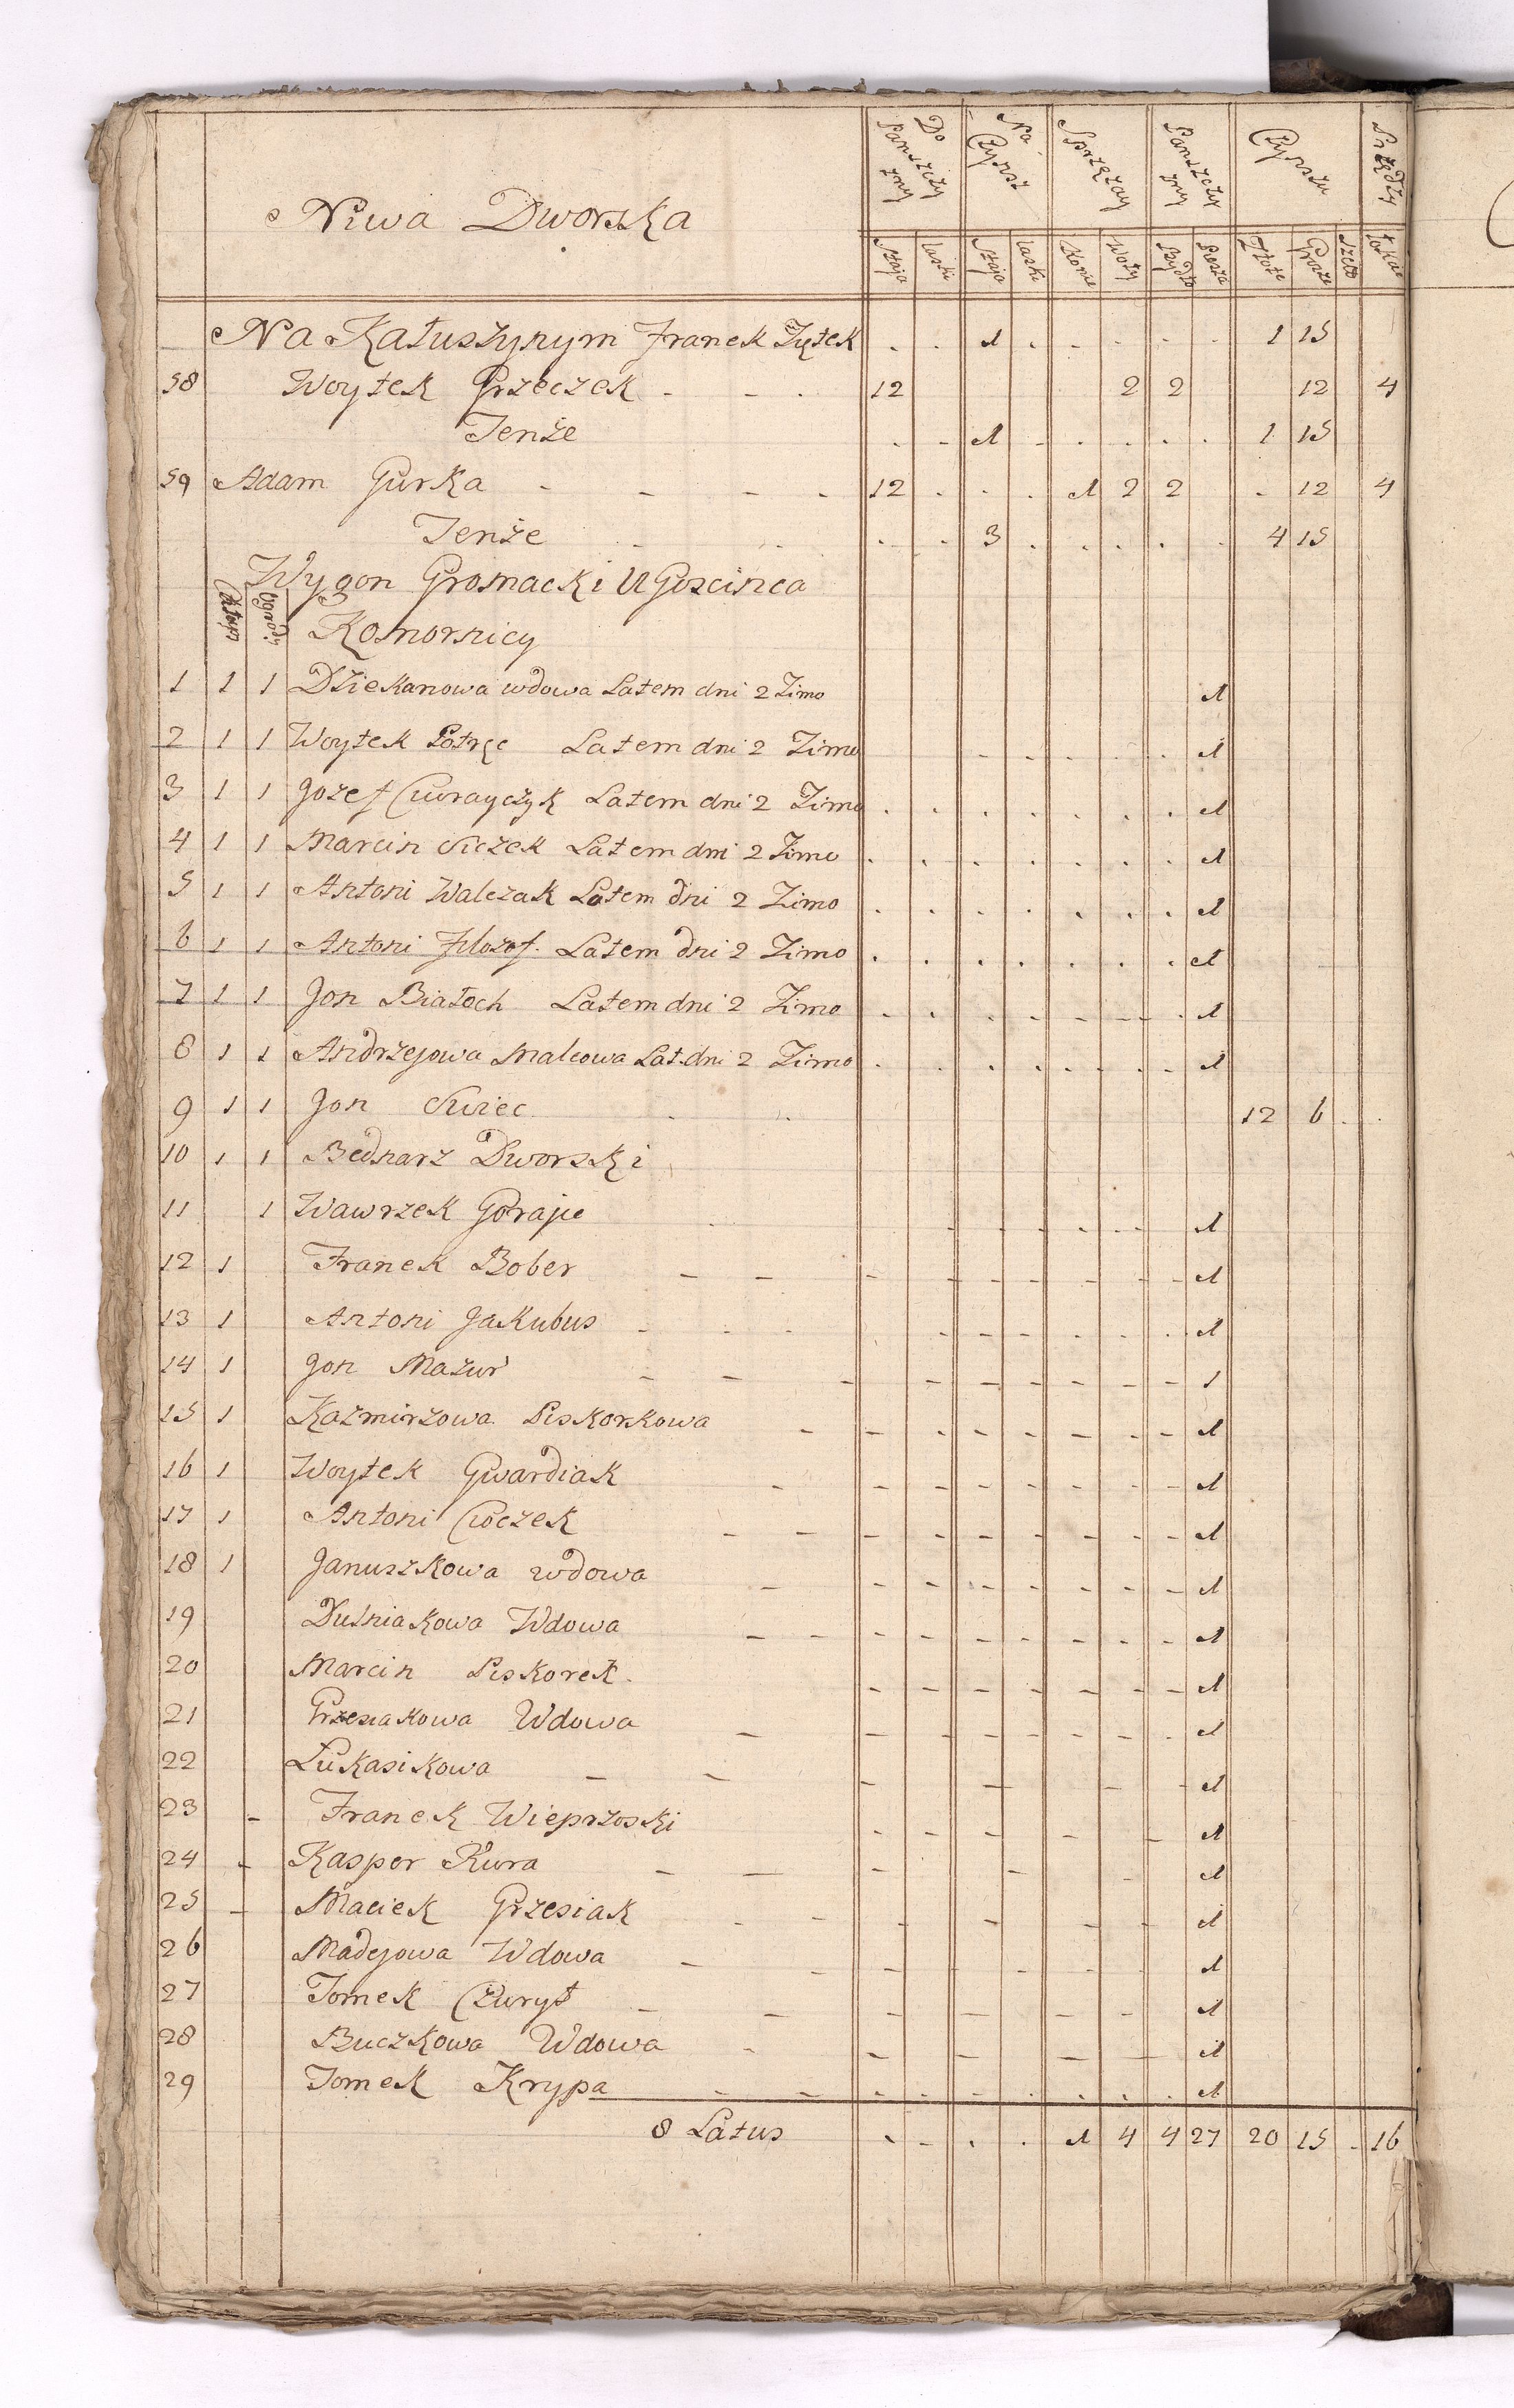 Niwa Dworska
Do Panszczyzny Na Czynsz Sprzężay Panszczyzny Czynszu Przędzy
Staja laski Staja laski Konie Woły Bydło Piesza Złote Grosze Szelo łokcie
Na Katuszynym Franek Ziętek . . 1 . - - . - . 1 15
58 Woytek Grzeczek - - . 12 2 2 12 4
Tenże . - 1 - . . . . 1 15
59 Adam Gurka - - - . 12 . . . 1 2 2 . 12 4
Tenże . . 3 . . . . . 4 15
Wygon Gromacki U Goscinca
Chłupy Ogrody Komornicy
1 1 1 Dziekanowa wdowa Latem dni 2 Zimo 1
2 1 1 Woytek Potręc Latem dni 2 Zimo 1
3 1 1 Jozef Cwrayczyk Latem dni 2 Zimo 1
4 1 1 Marcin Siczek Latem dni 2 Zimo 1
5 1 1 Antoni Walczak Latem dni 2 Zimo 1
6 1 1 Antoni Filozof. Latem dni 2 Zimo 1
7 1 1 Jon Białoch Latem dni 2 Zimo 1
8 1 1 Andrzejowa Malcowa Lat. dni 2 Zimo 1
9 1 1 Jon Swiec 12 6
10 1 1 Bednarz Dworski
11 1 Wawrzek Gorajec 1
12 1 Franek Bober 1
13 1 Antoni Jakubus 1
14 1 Jon Mazur 1
15 1 Kazmirzowa Piskorkowa 1
16 1 Woytek Gwardiak 1
17 1 Antoni Cwczek 1
18 1 Januszkowa wdowa 1
19 Dutniakowa Wdowa 1
20 Marcin Piskorek. 1
21 Grzesiakowa Wdowa 1
22 Łukasikowa 1
23 - Franek Wieprzoski 1
24 - Kasper Kura 1
25 - Maciek Grzesiak 1
26 Madejowa Wdowa 1
27 Tomek Czuryt 1
28 Buczkowa Wdowa 1
29 Tomek Krypa 1
8 Latus . - . . 1 4 4 27 20 15 - 16